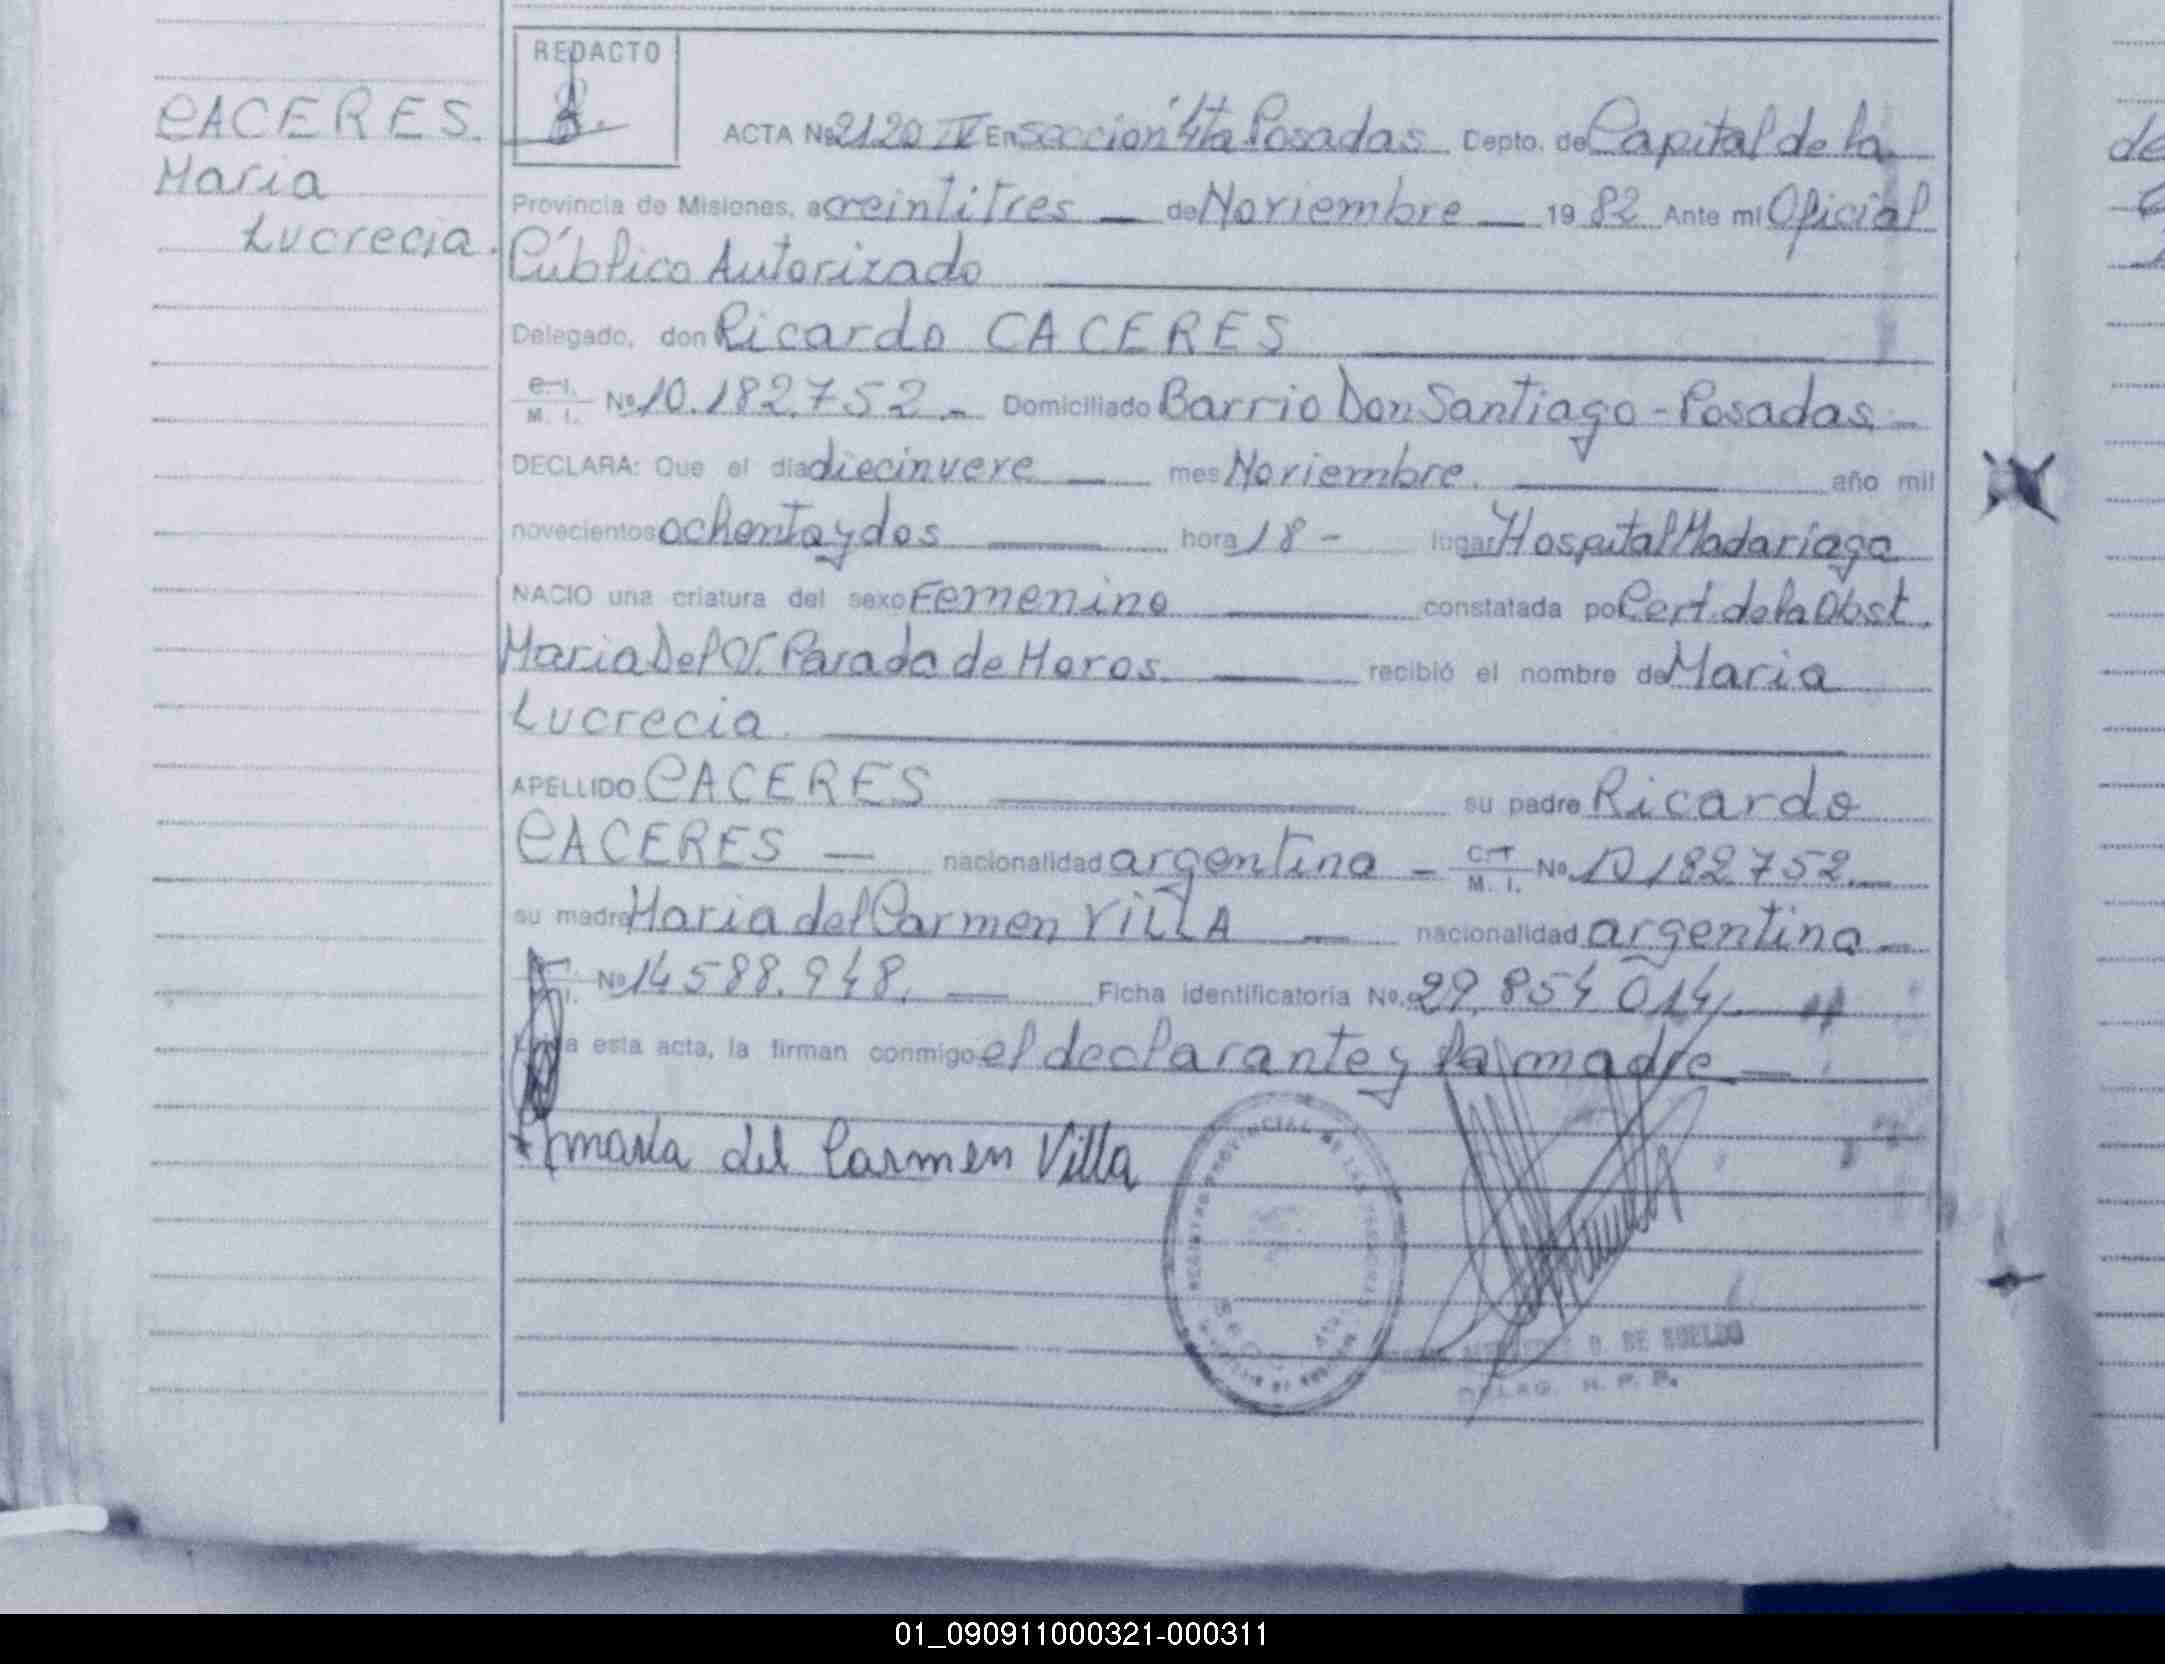 REDACTO
CACERES.
Maria
Lucrecia.
ACTA Nº 2120 IV En sección 4ta Posadas Depto. de Capital de la
Provincia de Misiones, a veintitres — de Noviembre — 19 82 Ante mi Oficial
Público Autorizado
Delegado, don Ricardo CACERES
C.I. M. I. Nº 10.182.752.- Domiciliado Barrio Don Santiago - Posadas.-
DECLARA: Que el día diecinueve — mes Noviembre. — año mil
novecientos ochenta y dos — hora 18 - lugar Hospital Madariaga
NACIO una criatura del sexo Femenino — constatada por Cert. de la Obst.
Maria Del Parada de Moros. — recibió el nombre de Maria
Lucrecia.
APELLIDO CACERES — su padre Ricardo
CACERES — nacionalidad argentina - C.I. M. I. Nº 10182752.
su madre Maria del Carmen VILLA — nacionalidad argentina -
Nº 14588.948. — Ficha identificatoria No. 29.854 014.
esta acta, la firman conmigo el declarante y la madre —
maria del Carmen Villa
REGISTRO PROVINCIAL DE LAS PERSONAS
D. DE SUELDO
DELEG. R. P. P.
01_090911000321-000311